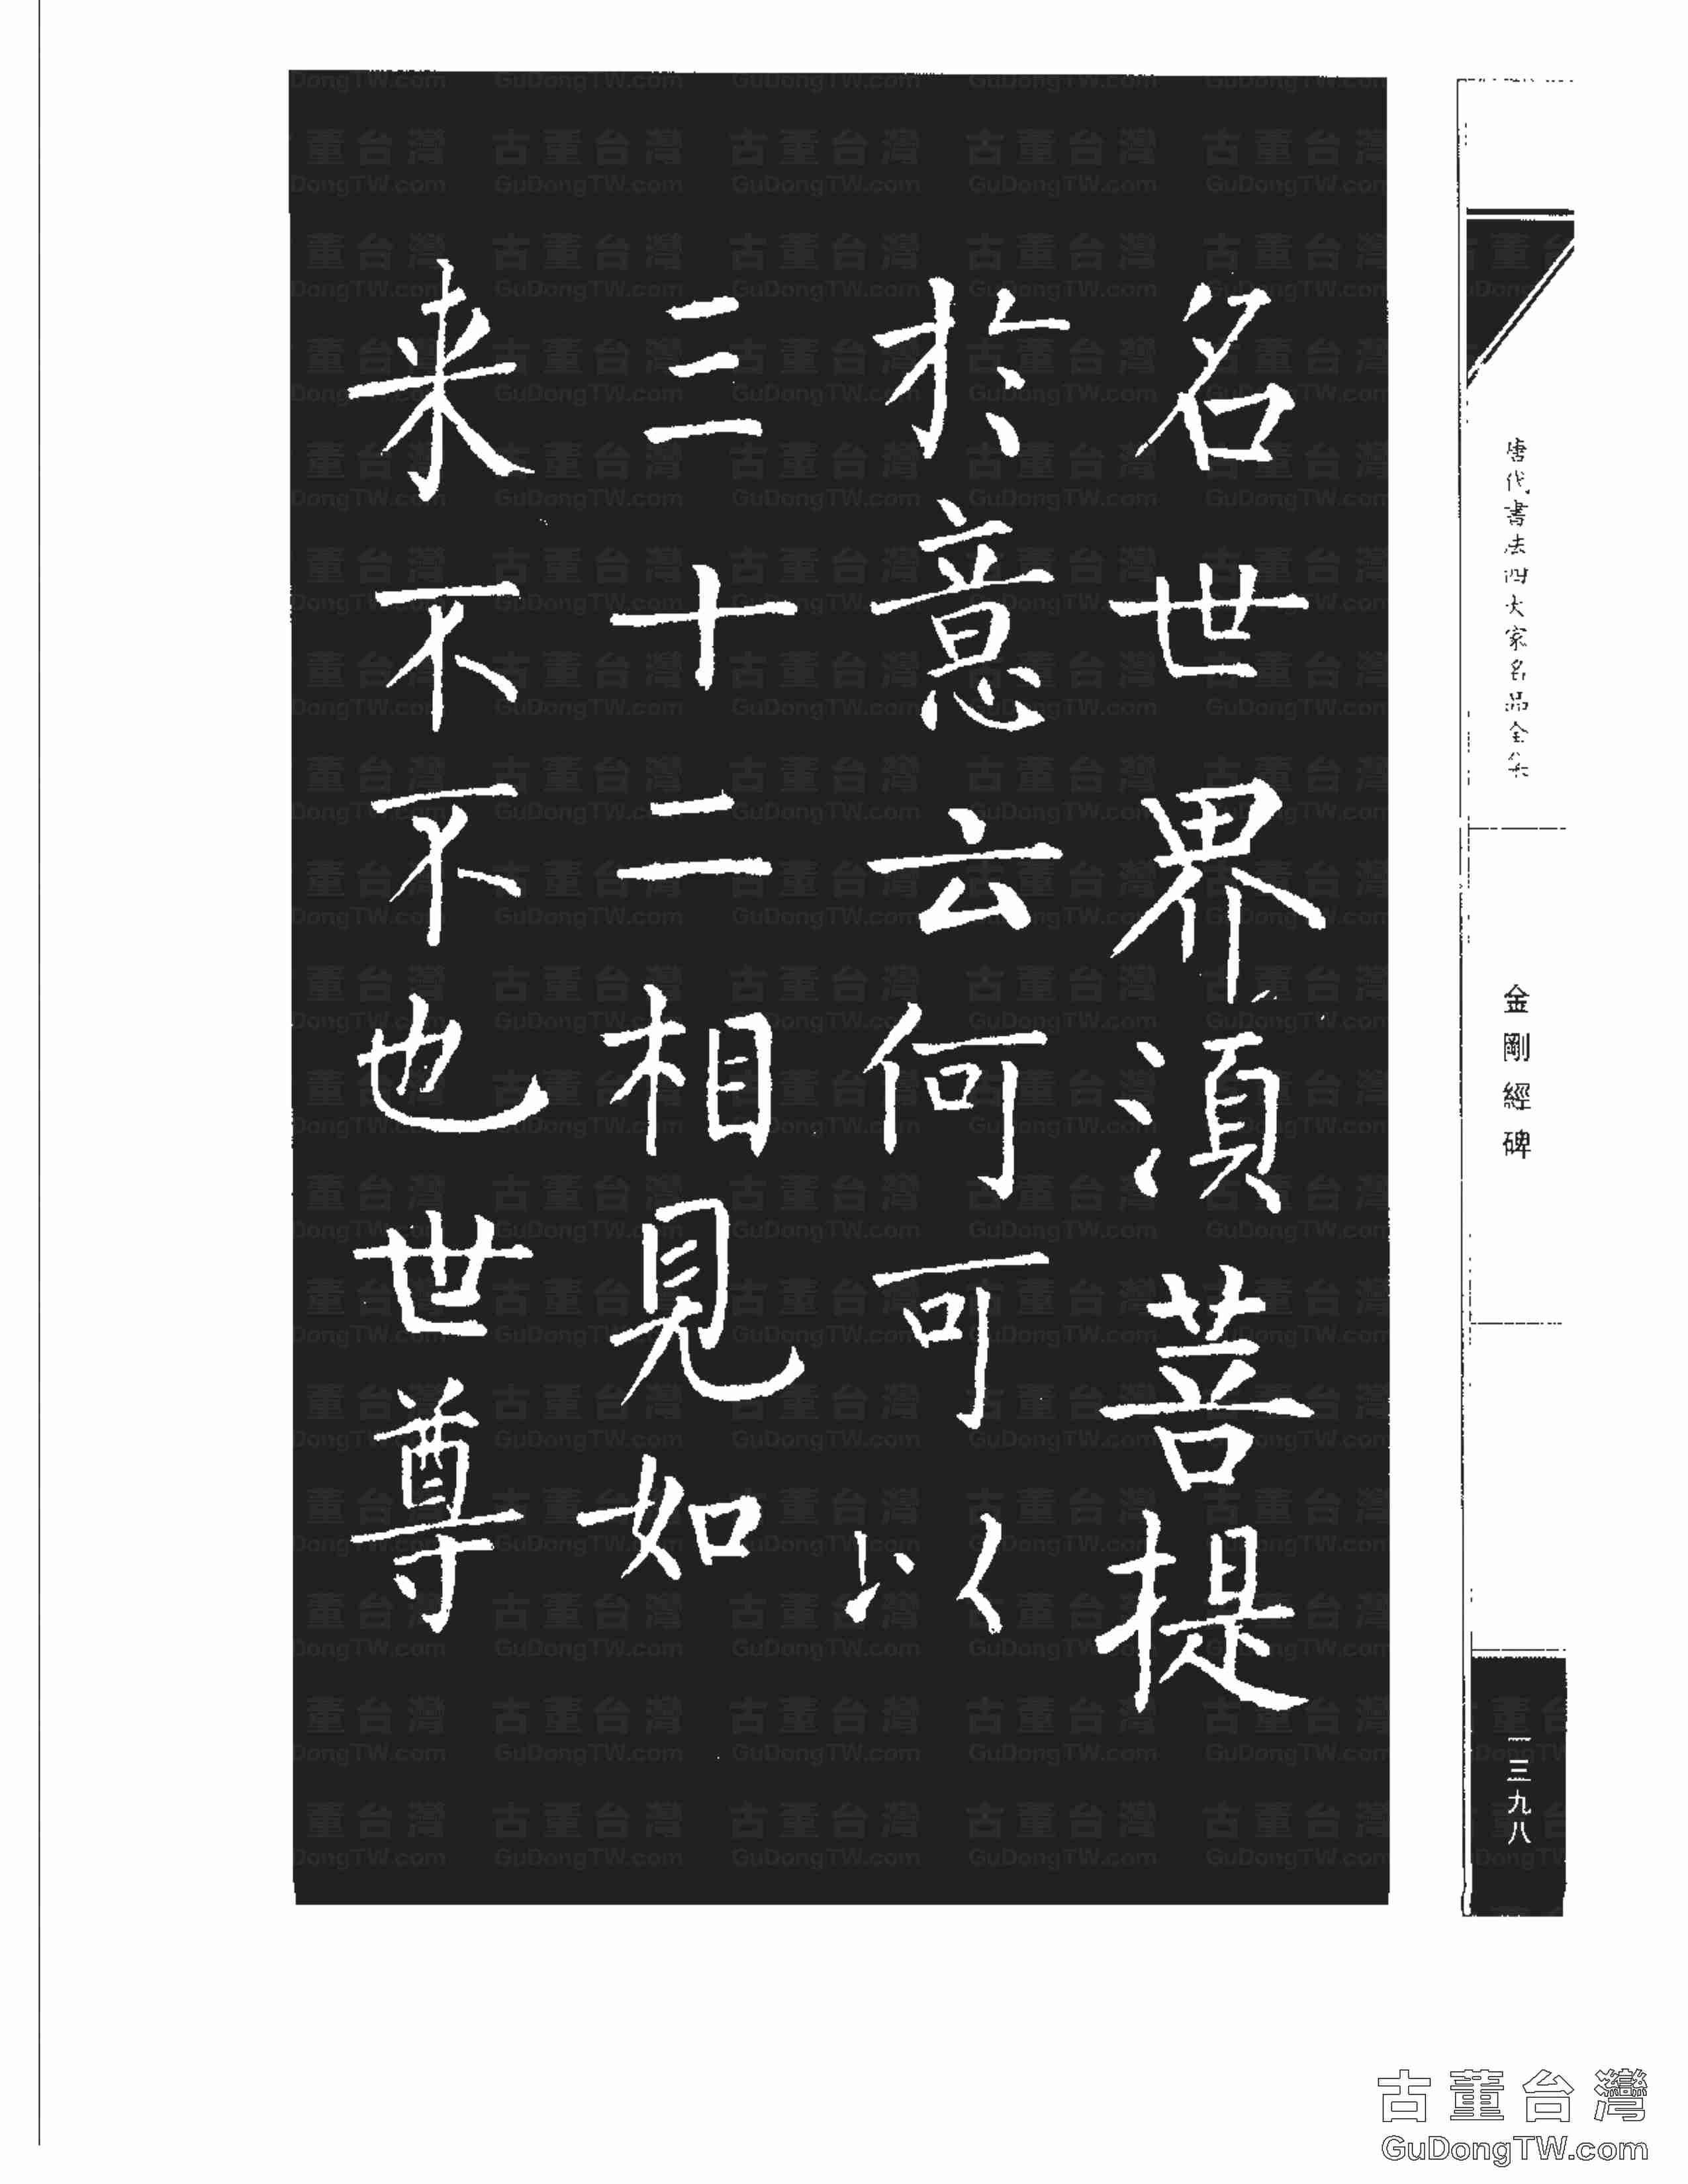 名世界湏菩提
於意云何可以
三十二相見如
来不不也世尊
唐代書法四大家名品全集
金剛經碑
一三九八
古董台灣
GuDongTW.com